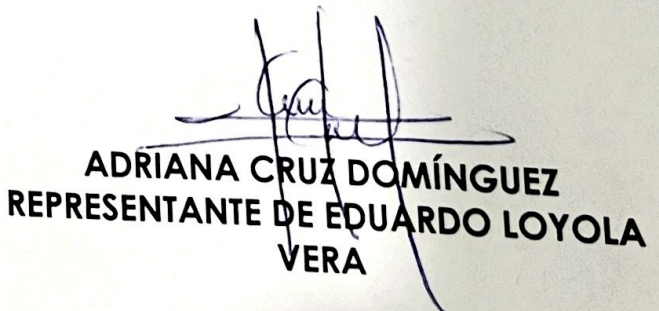 ADRIANA CRUZ DOMÍNGUEZ
REPRESENTANTE DE EDUARDO LOYOLA
VERA